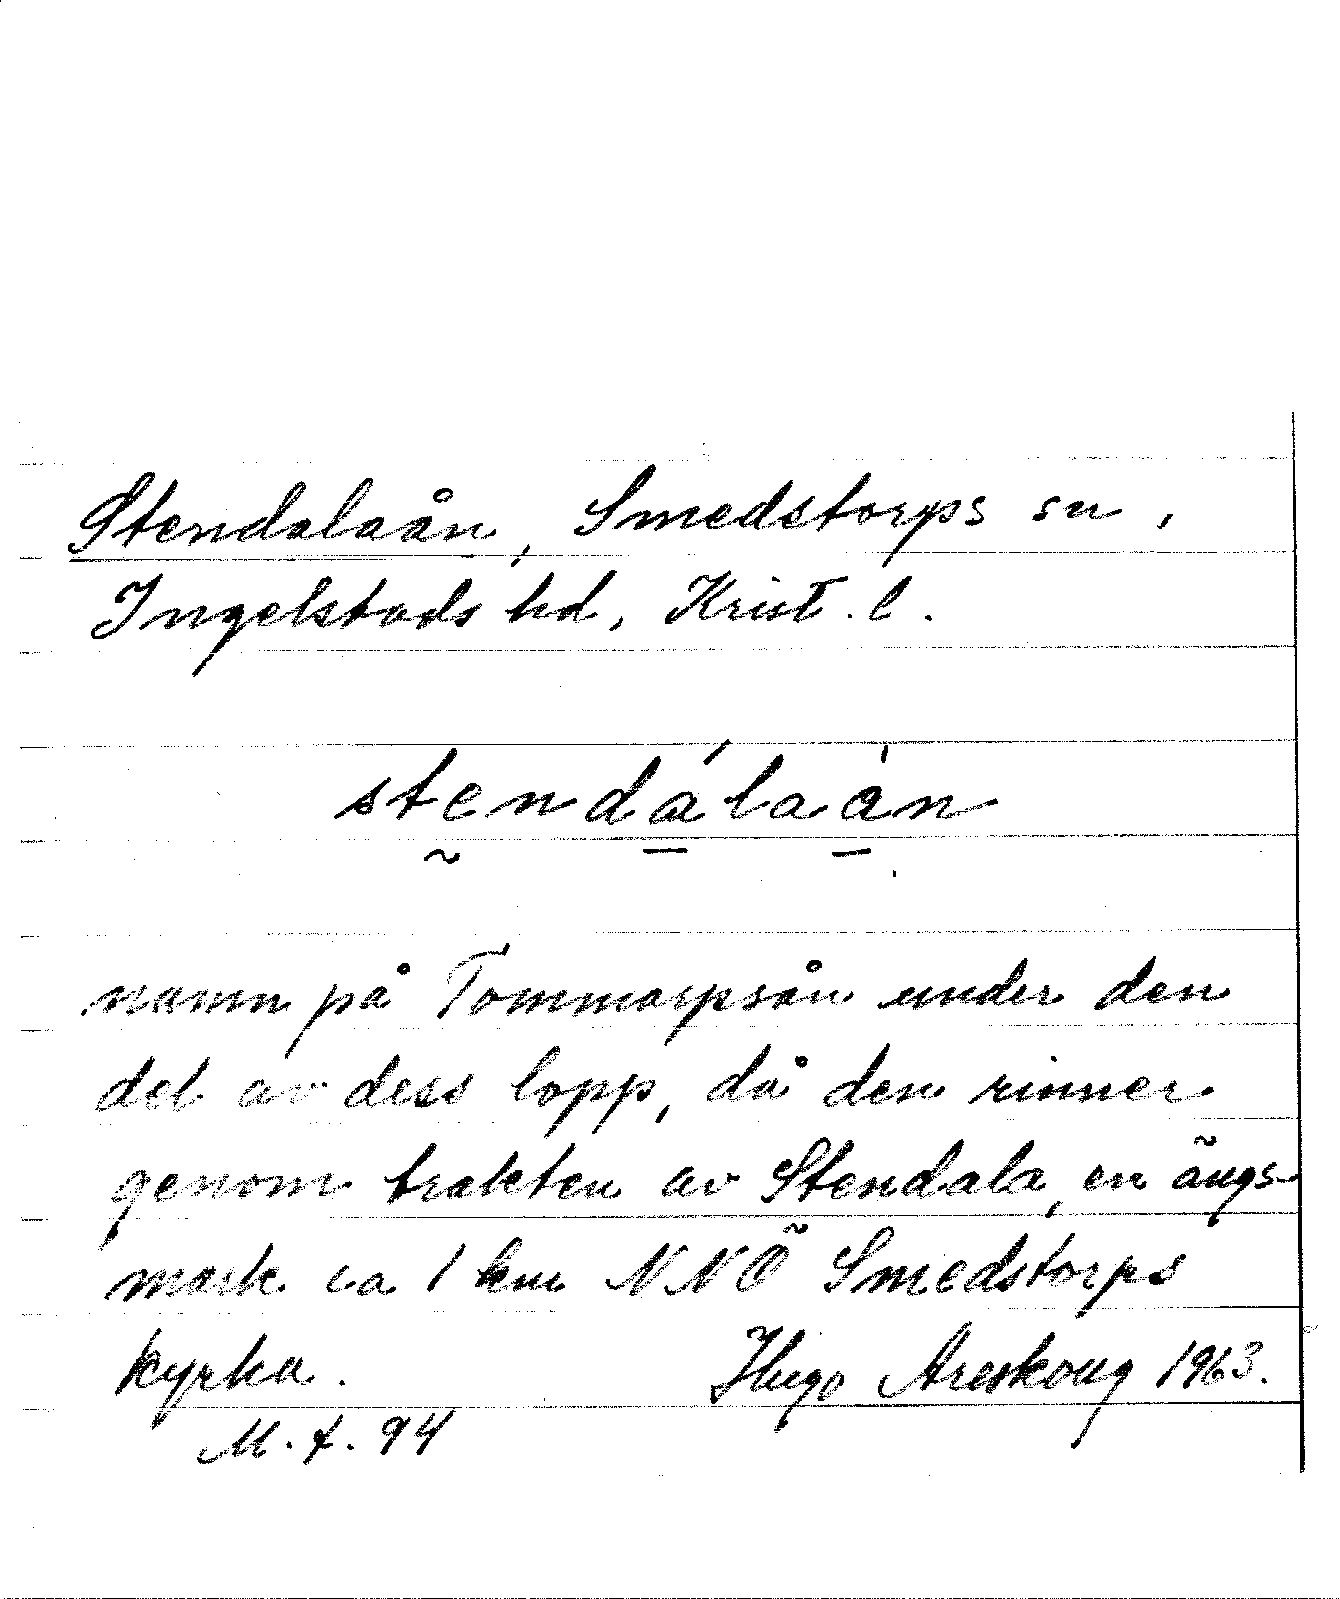 Stendalaån, Smedstorps sn,
Ingelstads hd, Krist. l.
stendálaån
namn på Tommarpsån under den
del av dess lopp, då den rinner
genom trakten av Stendala, en ängs-
mark ca 1 km NNÖ Smedstorps
kyrka. Hugo Areskoug 1963.
M. f. 94